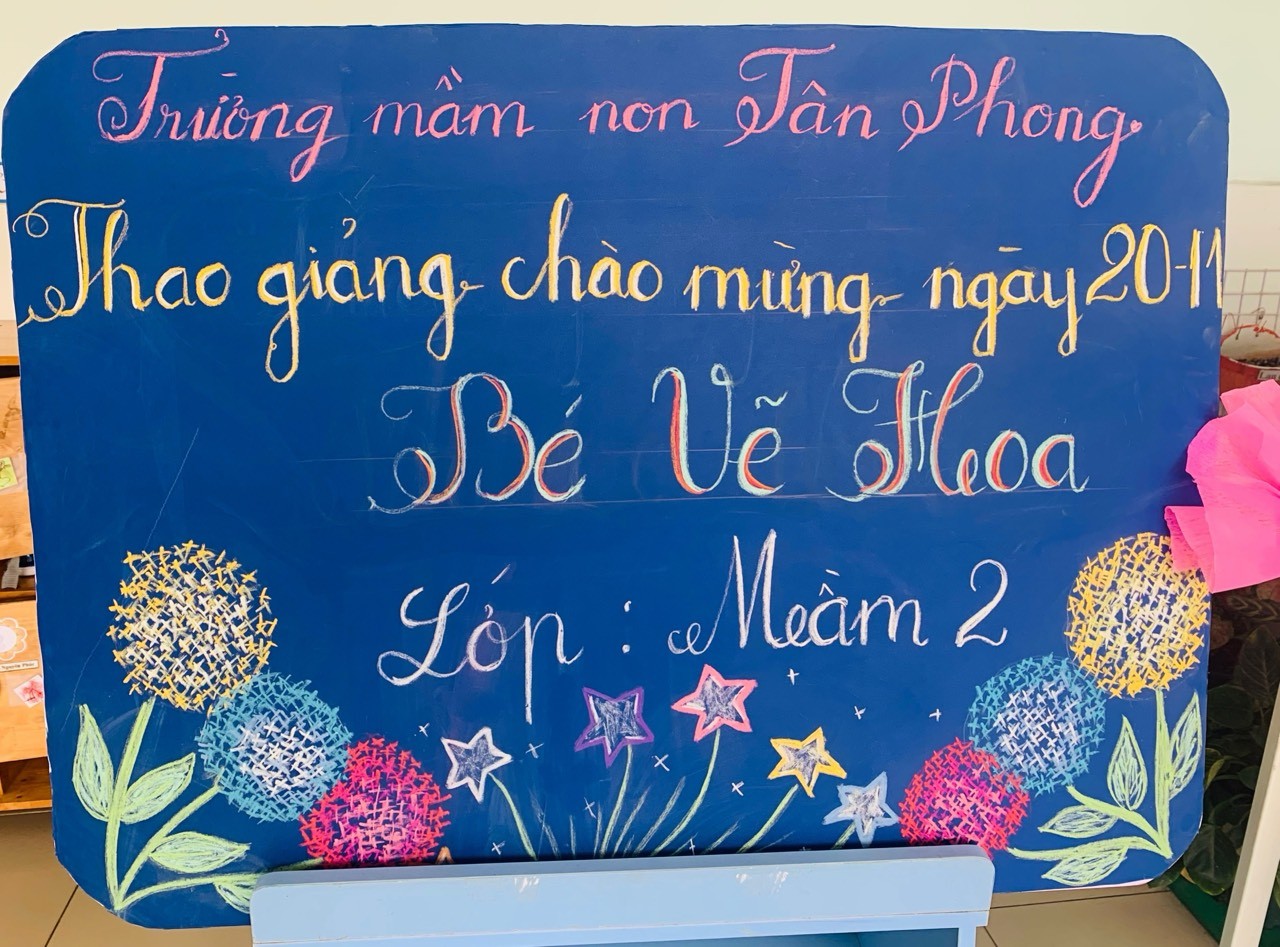 Trường mầm non Tân Phong
Thao giảng chào mừng ngày 20-11
Bé Vẽ Hoa
Lớp : Mầm 2